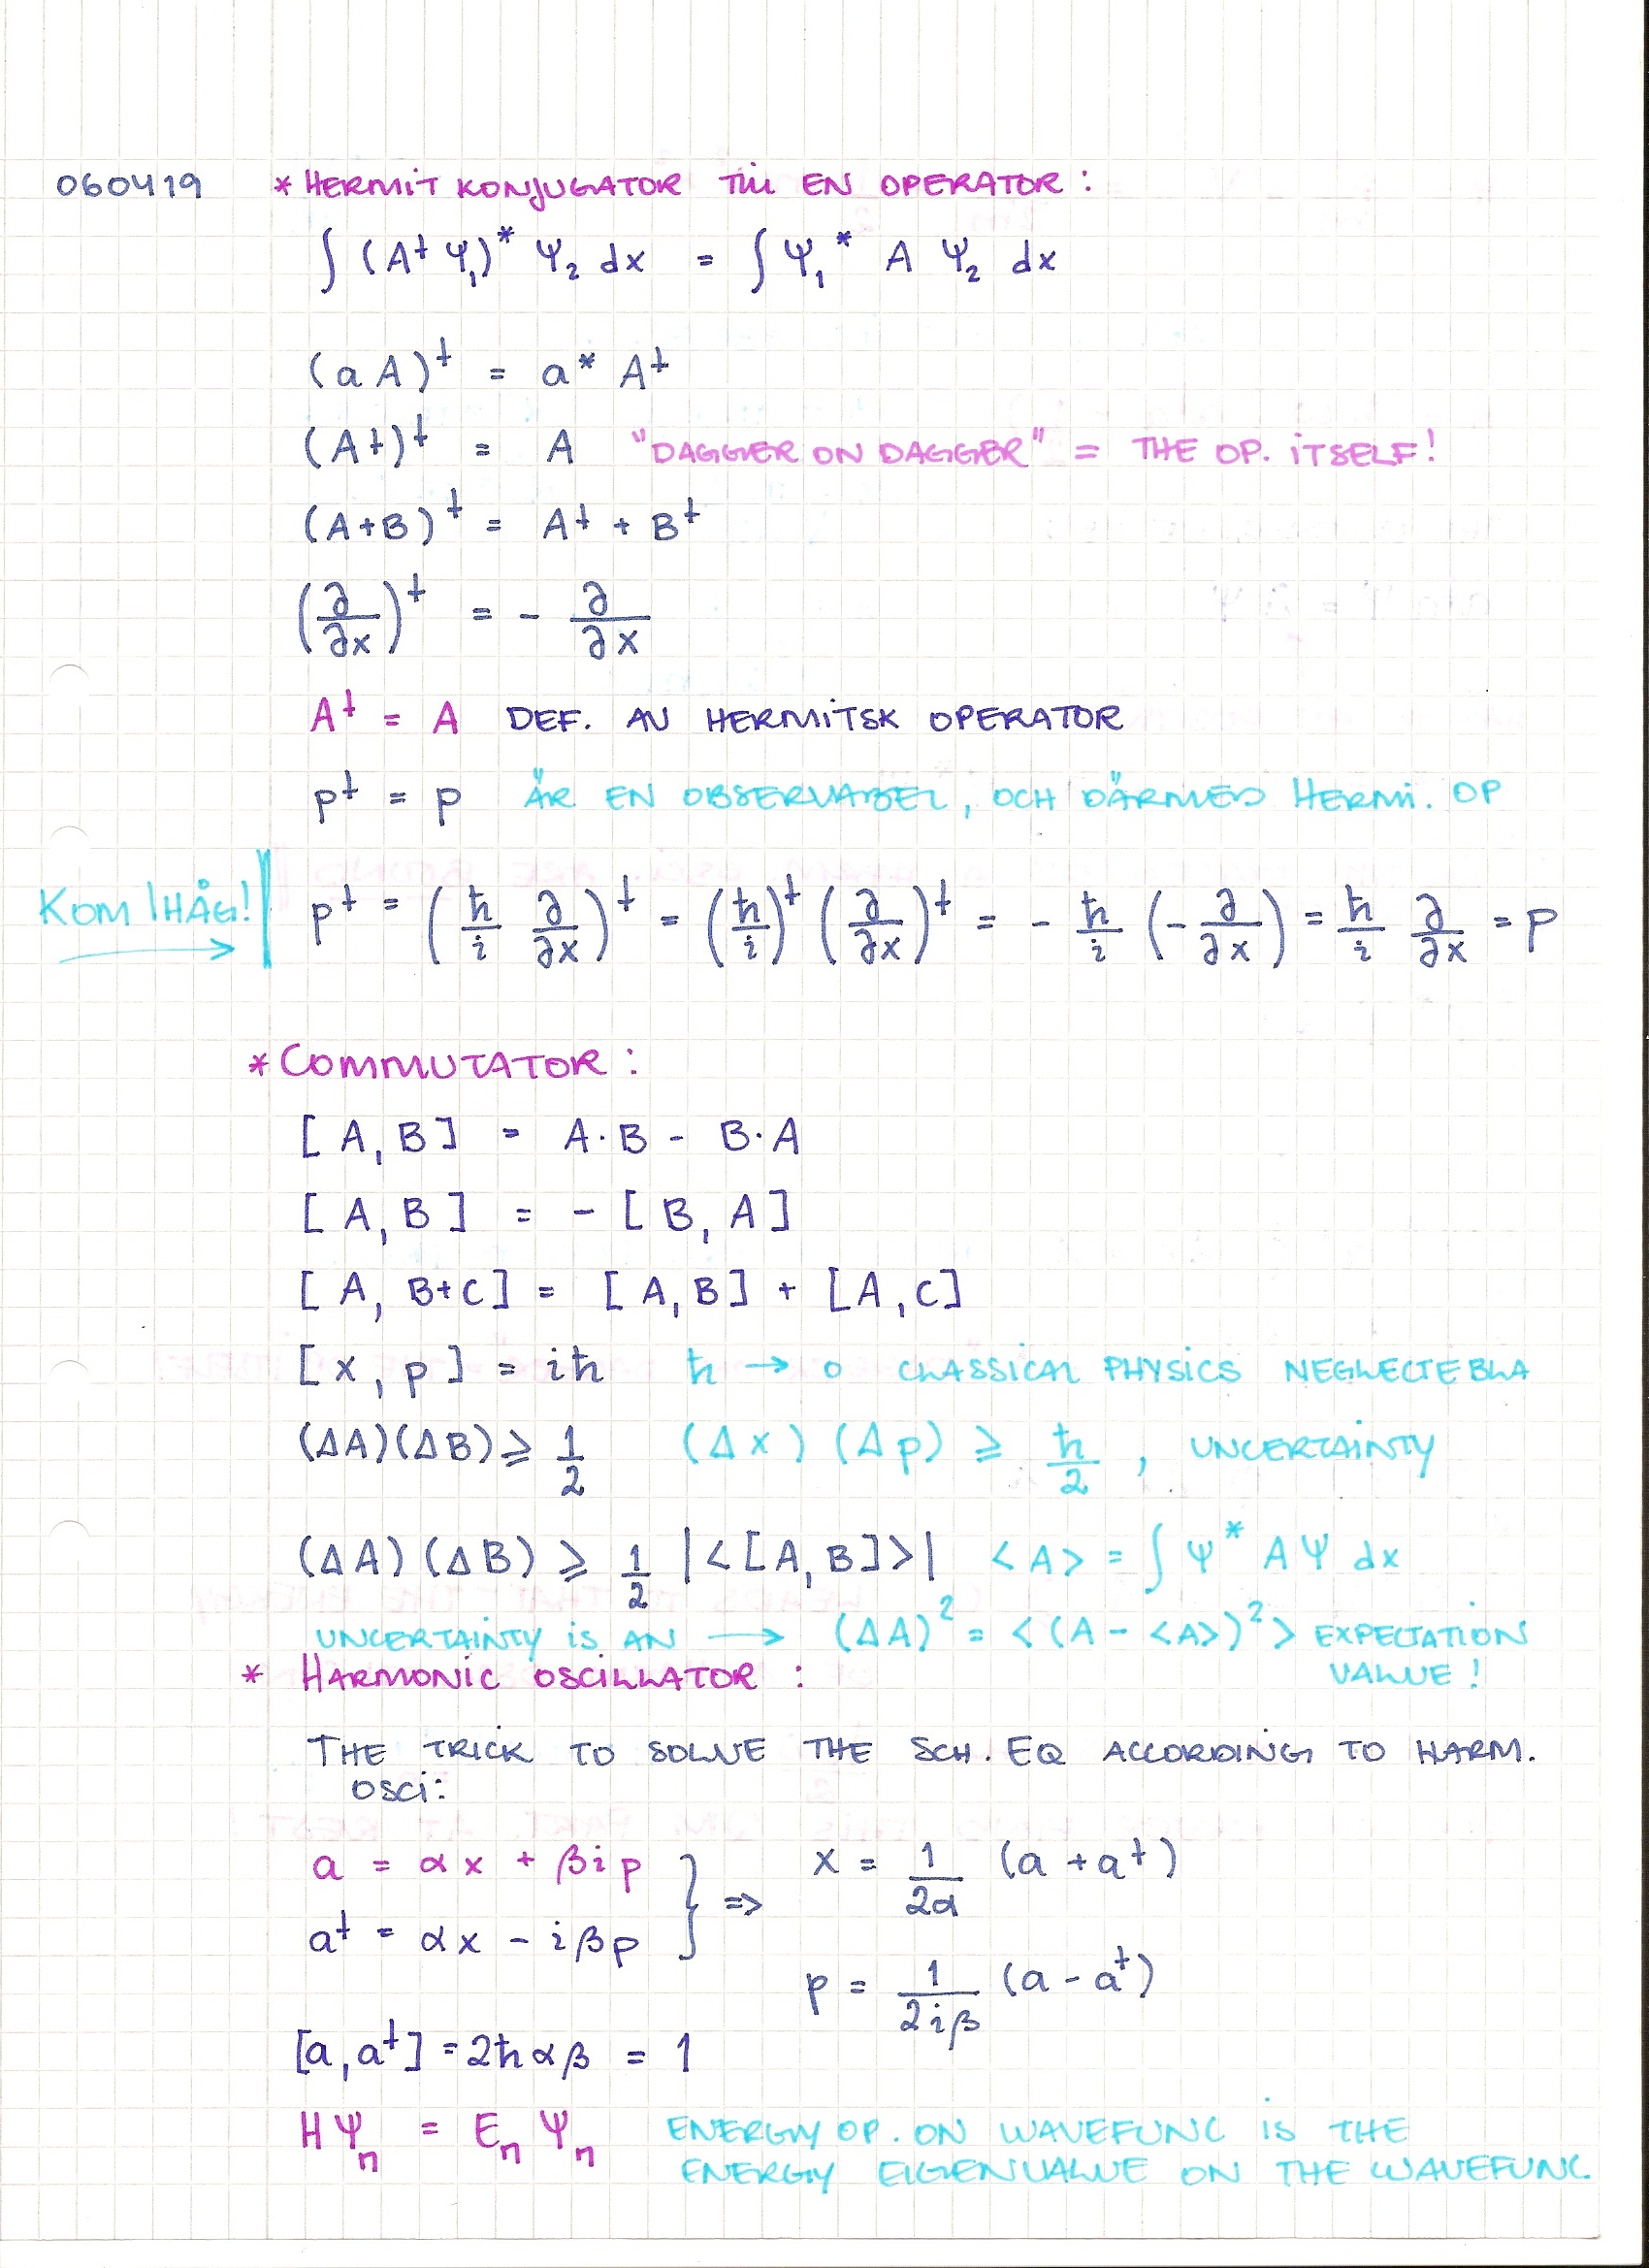 060419 * HERMIT KONJUGATOR TILL EN OPERATOR :
∫ (A† Ψ₁)* Ψ₂ dx = ∫ Ψ₁* A Ψ₂ dx
(a A)† = a* A†
(A†)† = A "DAGGER ON DAGGER" = THE OP. ITSELF!
(A+B)† = A† + B†
(∂/∂x)† = - ∂/∂x
A† = A DEF. AV HERMITSK OPERATOR
p† = p ÄR EN OBSERVABEL, OCH DÄRMED HERMI. OP
KOM IHÅG! → p† = (ħ/i ∂/∂x)† = (ħ/i)† (∂/∂x)† = - ħ/i (- ∂/∂x) = ħ/i ∂/∂x = p
* COMMUTATOR :
[A, B] = A·B - B·A
[A, B] = - [B, A]
[A, B+C] = [A, B] + [A, C]
[x, p] = iħ ħ → 0 CLASSICAL PHYSICS NEGLECTEBLA
(ΔA)(ΔB) ⩾ 1/2 (Δx) (Δp) ⩾ ħ/2 , UNCERTAINTY
(ΔA) (ΔB) ⩾ 1/2 |<[A, B]>| <A> = ∫ Ψ* A Ψ dx
UNCERTAINTY IS AN → (ΔA)² = <(A - <A>)²> EXPECTATION
VALUE !
* HARMONIC OSCILLATOR :
THE TRICK TO SOLVE THE SCH. EQ ACCORDING TO HARM.
OSCI:
a = αx + βip } ⇒ x = 1/2α (a + a†)
a† = αx - iβp
p = 1/2iβ (a - a†)
[a, a†] = 2ħαβ = 1
HΨₙ = Eₙ Ψₙ ENERGY OP. ON WAVEFUNC IS THE
ENERGY EIGENVALUE ON THE WAVEFUNC.